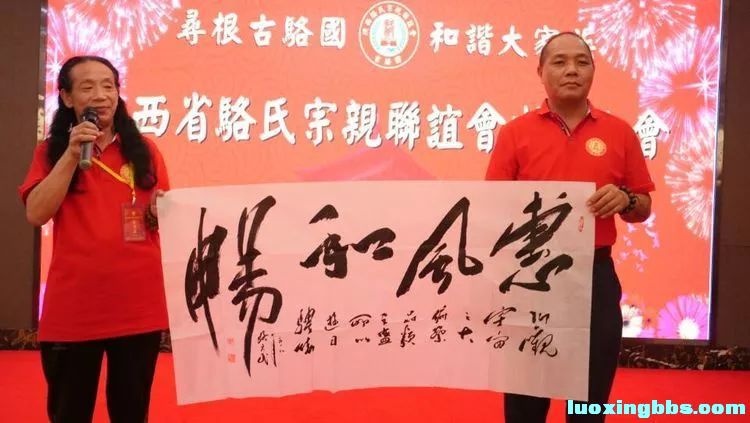 尋根古駱國 和諧大家
西省駱氏宗親聯誼會 會
惠風和暢
仰觀
宇宙
之大
俯察
品類
之盛
所以
遊目
騁懷
luoxingbbs.com